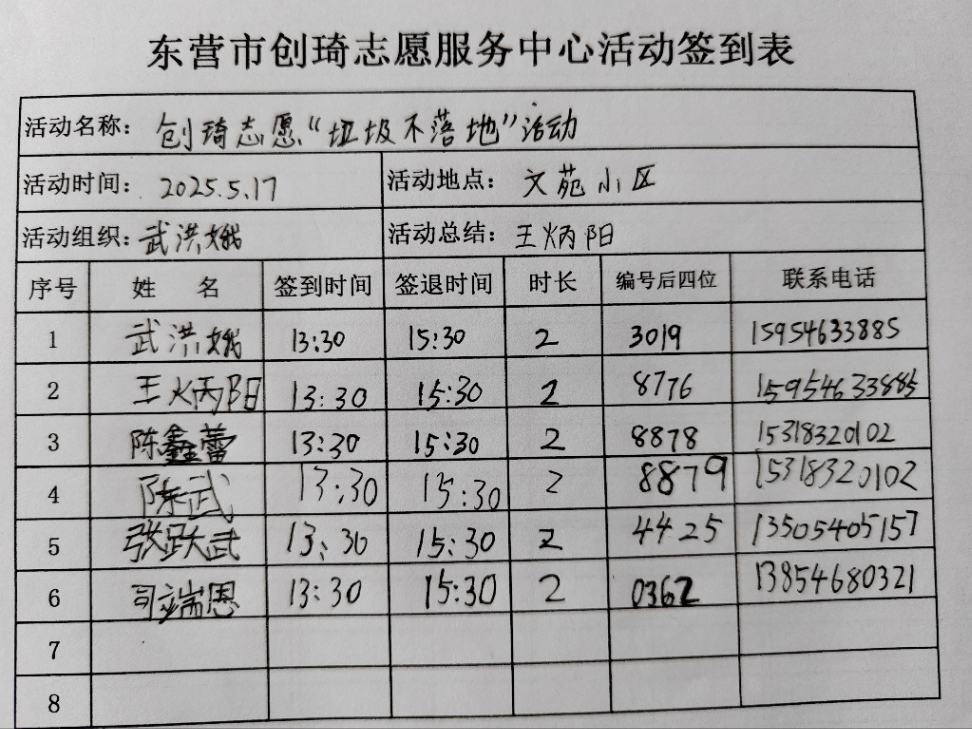 东营市创琦志愿服务中心活动签到表
活动名称：创琦志愿“垃圾不落地”活动
活动时间：2025.5.17 活动地点：文苑小区
活动组织：武洪娥 活动总结：王炳阳
序号 姓 名 签到时间 签退时间 时长 编号后四位 联系电话
1 武洪娥 13:30 15:30 2 3019 15954633885
2 王炳阳 13:30 15:30 2 8776 15954633885
3 陈鑫蕾 13:30 15:30 2 8878 15318320102
4 陈武 13:30 15:30 2 8879 15318320102
5 张跃武 13:30 15:30 2 4425 13505405157
6 司端恩 13:30 15:30 2 0362 13854680321
7
8